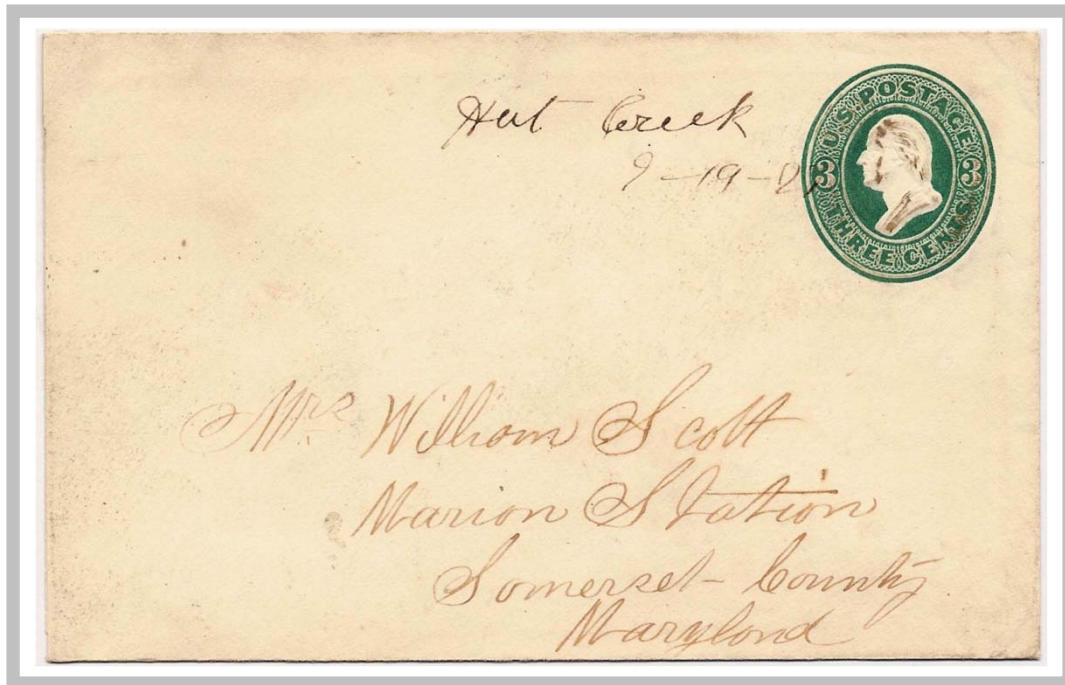 Hat Creek
9-19-
U.S. POSTAGE
3 3
THREE CENTS
Mrs William Scott
Marion Station
Somerset County
Maryland